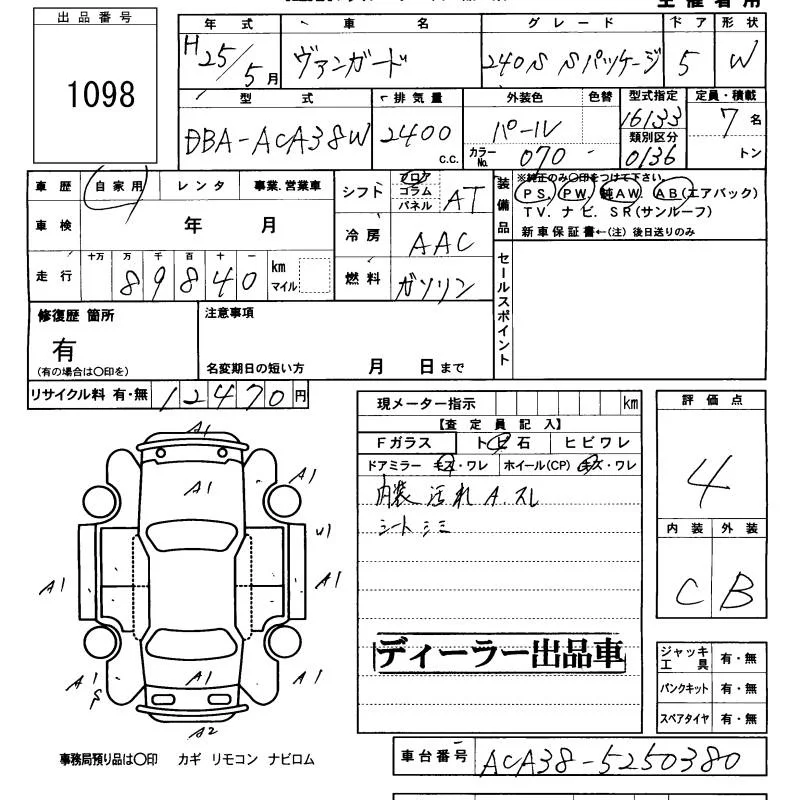 主催者用
出品番号
1098
年式 車名 グレード ドア 形状
H25/5月 ヴァンガード 240S Sパッケージ 5 W
型式 排気量 外装色 色替 型式指定 定員・積載
DBA-ACA38W 2400 c.c. パール 16133 7名
類別区分
カラーNo. 070 0136 トン
車歴 自家用 レンタ 事業.営業車
シフト フロア コラム パネル AT
装備品 ※純正のみ○印をつけて下さい。
PS, PW, 純AW. AB(エアバック)
TV. ナビ. SR(サンルーフ)
新車保証書←(注)後日送りのみ
車検 年 月
冷房 AAC
走行 十万 万 千 百 十 一
89840 km マイル
燃料 ガソリン
セールスポイント
修復歴 箇所
有
(有の場合は○印を)
注意事項
名変期日の短い方 月 日まで
リサイクル料 有・無 12470円
現メーター指示 km
評価点
4
【査定員記入】
Fガラス トビ石 ヒビワレ
ドアミラー キズ・ワレ ホイール(CP) キズ・ワレ
内装 汚れ A.スレ
シート シミ
内装 外装
C B
A1
A1
A1
U1
A1
A1
A1
A1
A1
A2
ディーラー出品車
ジャッキ工具 有・無
パンクキット 有・無
スペアタイヤ 有・無
事務局預り品は○印 カギ リモコン ナビロム
車台番号 ACA38-5250380